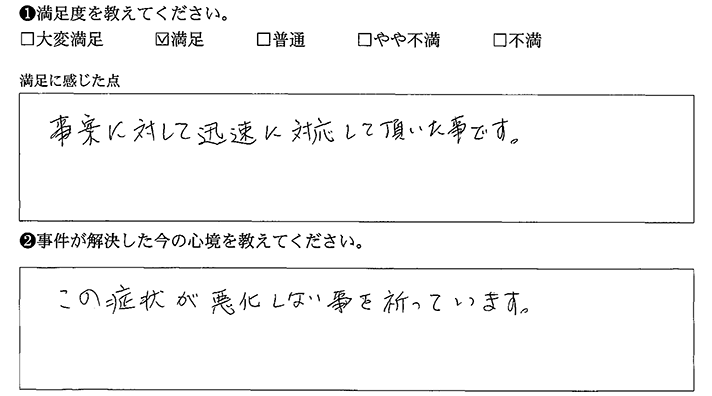 ❶満足度を教えてください。
□大変満足 ☑満足 □普通 □やや不満 □不満
満足に感じた点
事案に対して迅速に対応して頂いた事です。
❷事件が解決した今の心境を教えてください。
この症状が悪化しない事を祈っています。